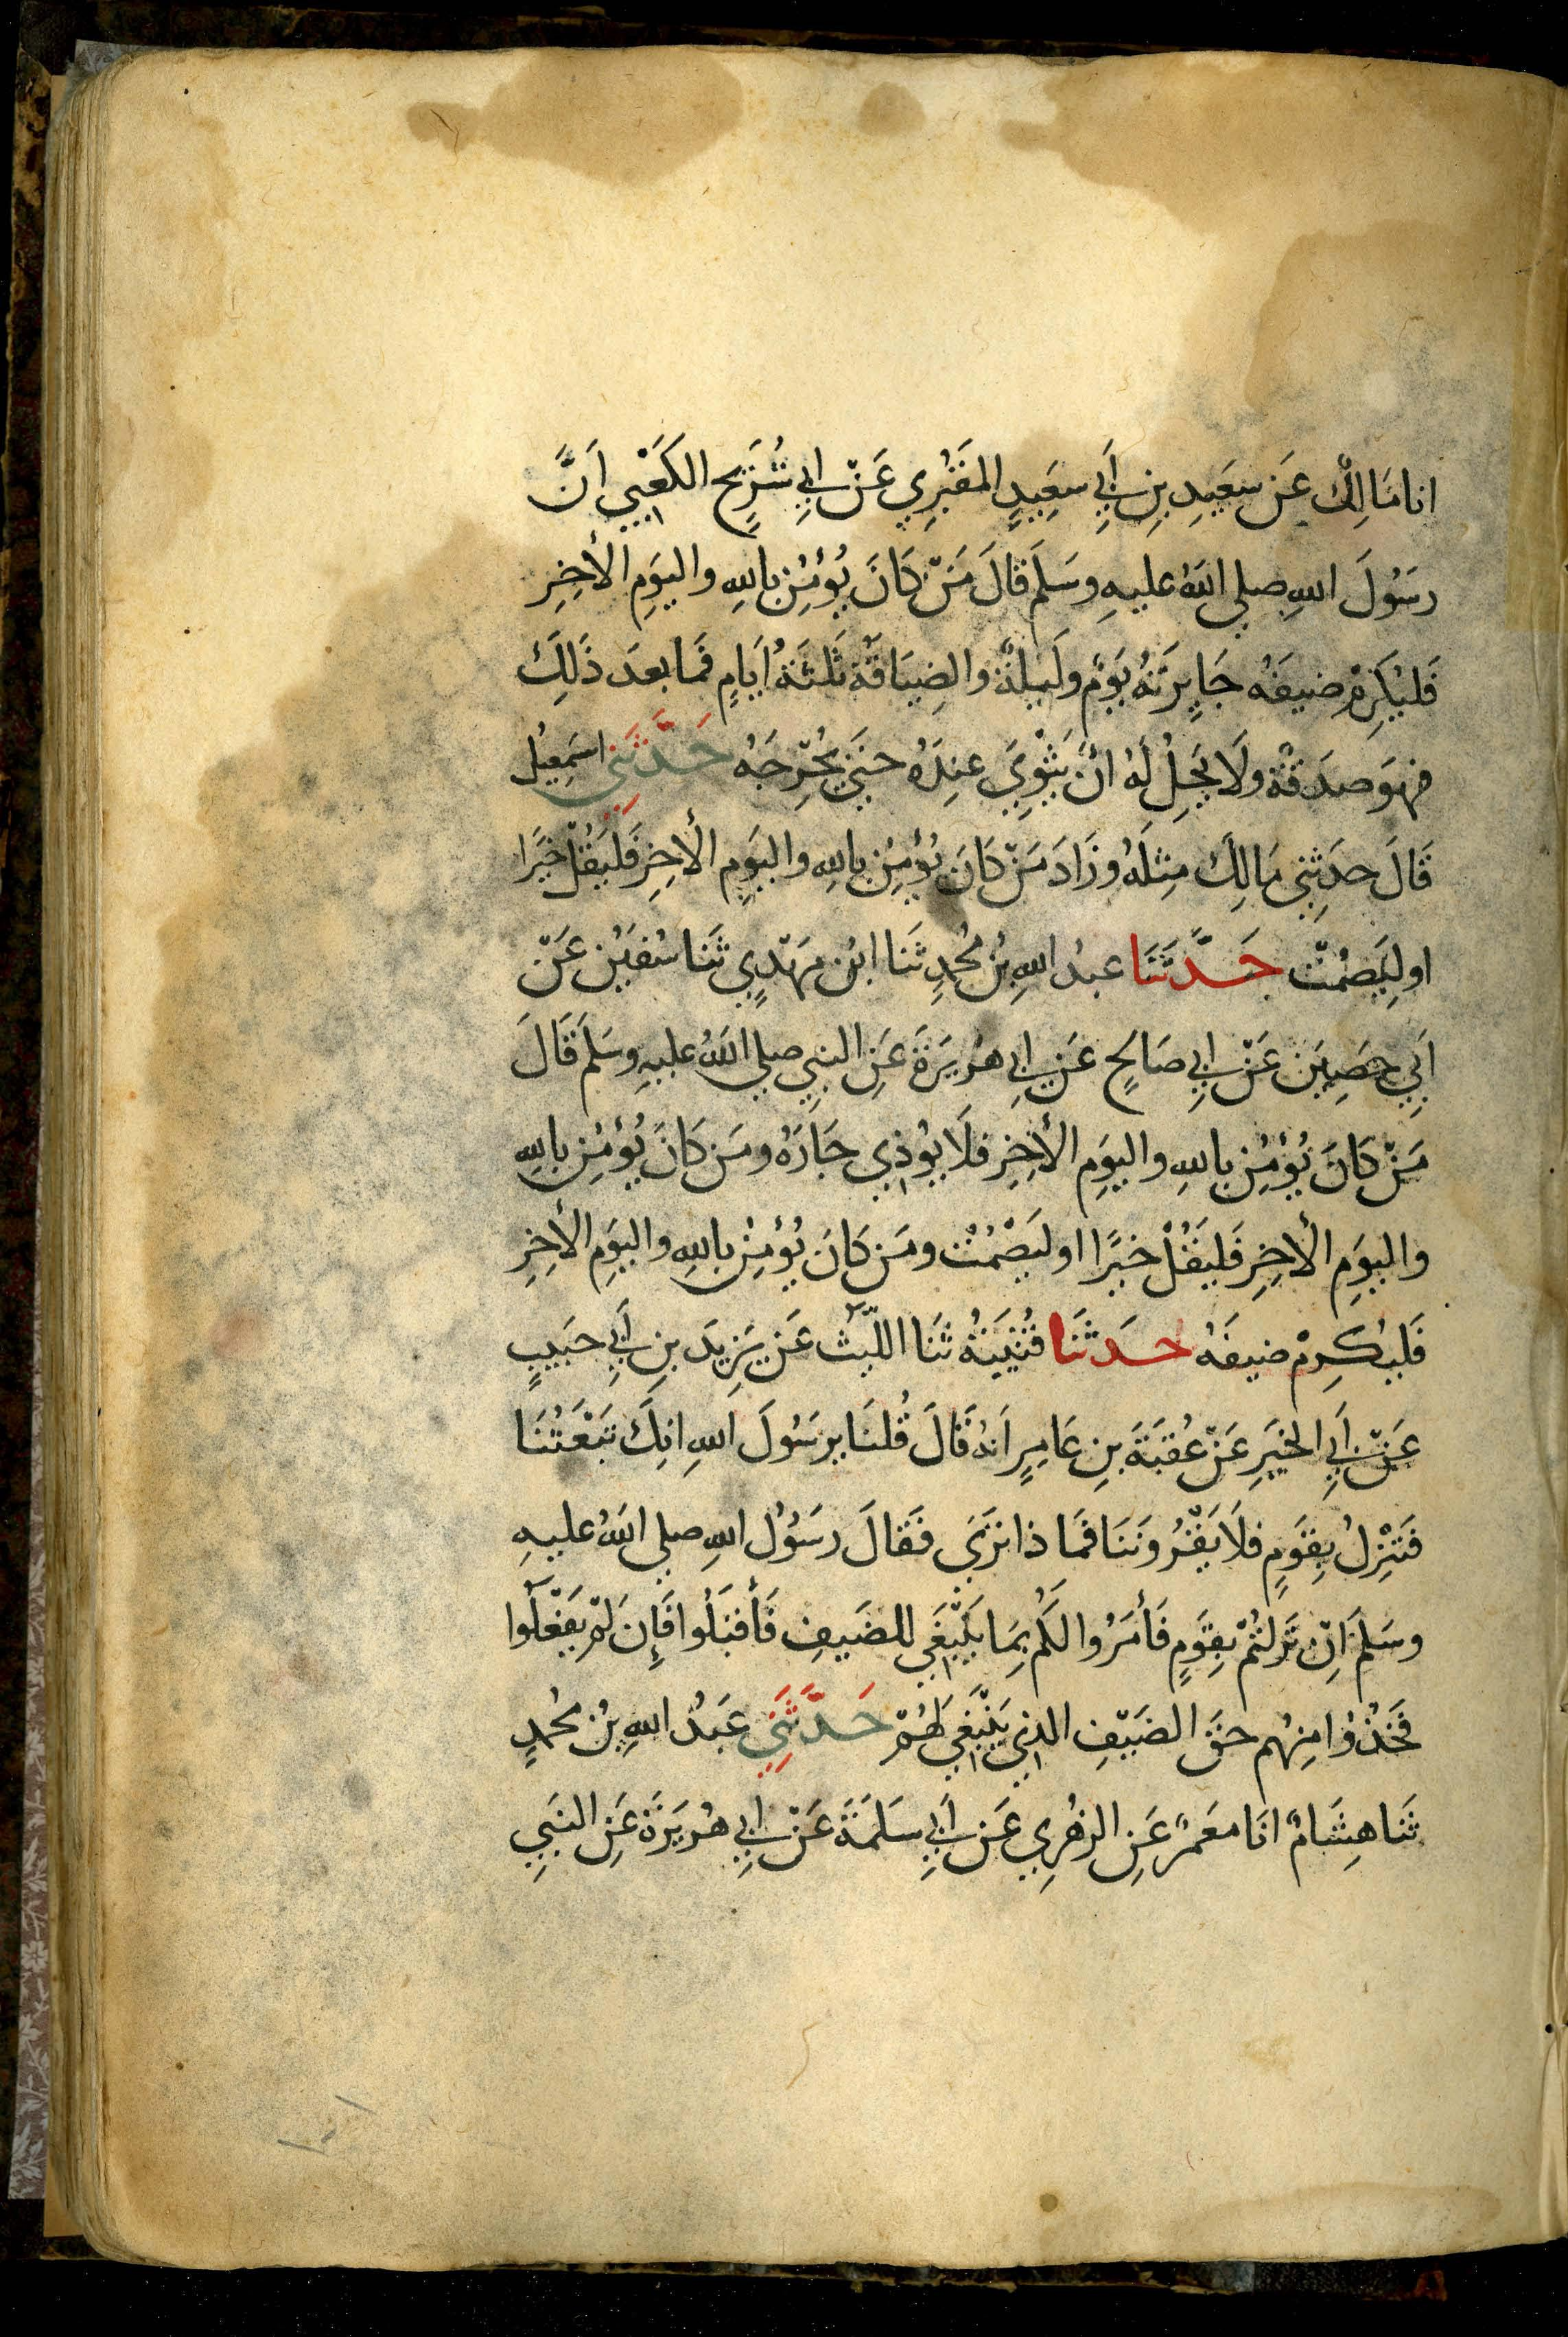 انا مَالِكٌ عَن سَعِيدِ بنِ أَبِي سَعِيدٍ المَقبُرِي عَنْ ابِي شُرَيحٍ الكَعْبِي اَنَّ
رَسُولَ اللهِ صلي اللهُ عليهِ وسَلَمَ قَالَ مَنْ كَانَ يُؤمِنُ باللهِ واليَومِ الأخِرِ
فَليُكرِمْ ضيفَهُ جَايِزَتَهُ يَومٌ ولَيلَةٌ والضِيَافَةُ ثَلثَةُ اَيَامٍ فَمَا بعدَ ذَلِكَ
فهوَ صدَقةٌ ولَا يَحِلُ لَهُ انْ يَثْوِيَ عِندَهُ حتَي يُحْرِجَهُ حَدَّثَنِي اسمَعِيلُ
قَالَ حدَثِني مَالِكٌ مِثلَهُ وزَادَ مَنْ كَانَ يُؤمِنُ باللهِ واليَومِ الأخِرِ فَليَقُلْ خيرًا
او لِيَصمُتْ حَدَّثَنَا عبدُ اللهِ بنُ مُحمدٍ ثَنا ابنُ مَهْدِي ثَنا سُفيَن عَنْ
اَبِي حصِين عَنْ ابِي صَالحٍ عَن ابِي هُريرَةَ عَنِ النبِي صلي اللهُ عليهِ وسَلَمَ قَالَ
مَنْ كَانَ يُؤمِنُ باللهِ واليَومِ الأخِرِ فلَا يوُذِي جَارَهُ ومَن كَانَ يُؤمِنُ باللهِ
واليَومِ الأخِرِ فَليَقُلْ خيرًا او ليَصْمُتْ ومَن كَانَ يُؤمِنُ باللهِ واليَومِ الأخِرِ
فَليُكرِمْ ضيفَهُ حدَثَنَا قُتَيبَةُ ثَنَا اللّيثُ عَن يَزِيدَ بنِ اَبِي حبَيبٍ
عَنْ اَبِي الخَيرِ عَنْ عُقبَةَ بنِ عَامِرٍ اَنهُ قَالَ قُلنَا يرسُولَ اللهِ انِكَ تَبْعَثُنَا
فَنَنْزِلُ بِقَومٍ فلَا يَقْرُونَنَا فَمَا ذا تَرَي فَقالَ رسَوُلُ اللهِ صلي اللهُ عليهِ
وسَلمَ اِنْ نَزَلتُمْ بِقَومٍ فَأمَرُوا لَكُم بِمَا يَنْبَغِي للضَيفِ فَأقبَلُوا فَإِن لَمْ يَفْعَلُوا
فَخُذُوا مِنهُم حقَ الضَيْفِ الذِي يَنْبَغِي لَهُمْ حَدَّثَنِي عَبدُ اللهِ بنُ مُحمدٍ
ثَنا هِشَامٌ انَا مَعمَرٌ عَنِ الزهُرِي عَن اَبِي سَلَمَةَ عَنْ ابِي هُريرَةَ عَنِ النبَيِ